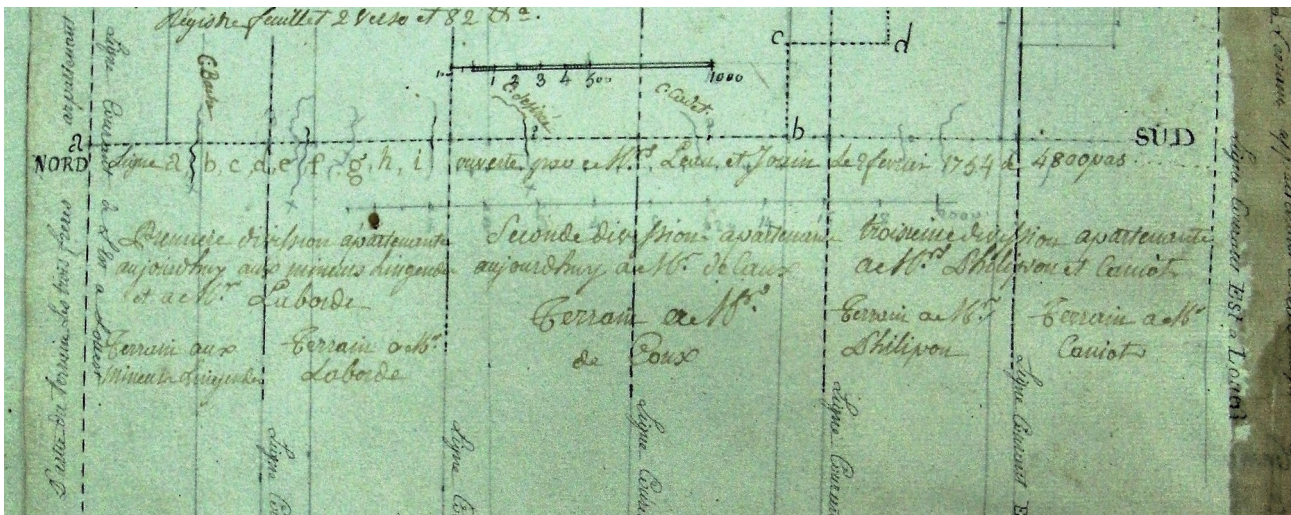 Registre feuillet 2 Verso et 82
c d
1 2 3 4 500 1000
C. Cadet
a b
NORD SUD
Ligne a, b, c, d, e, f, g, h, i, ouverte par Mrs. et Jouin le 2 fevrier 1754 de 4800 pas
Premiere division apartenante
aujourdhuy aux mineurs Lingendes
et a Mr. Laborde
Seconde division apartenante
aujourdhuy a Mr. de Caux
troisieme division apartenante
a Mrs. Philipon et Caniot
Terrain aux
Mineurs Lingendes
Terrain a Mr.
Laborde
Terrain a Mr.
de Coux
Terrain a Mr.
Philipon
Terrain a Mr.
Caniot
Partie du terrain Les trois freres apartenant
Ligne Courant
Ligne
Ligne
Ligne
Ligne Courant
Ligne Courant E
Ligne Courant Est a